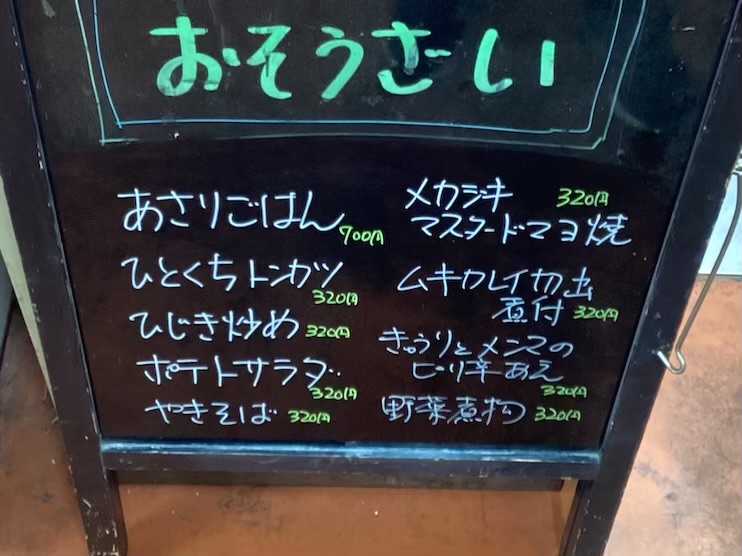 おそうざい
あさりごはん
700円
ひとくちトンカツ
320円
ひじき炒め 320円
ポテトサラダ
320円
やきそば 320円
メカジキ 320円
マスタードマヨ焼
ムキカレイカ
煮付 320円
きゅうりとメンマの
ピリ辛あえ
320円
野菜煮物 320円